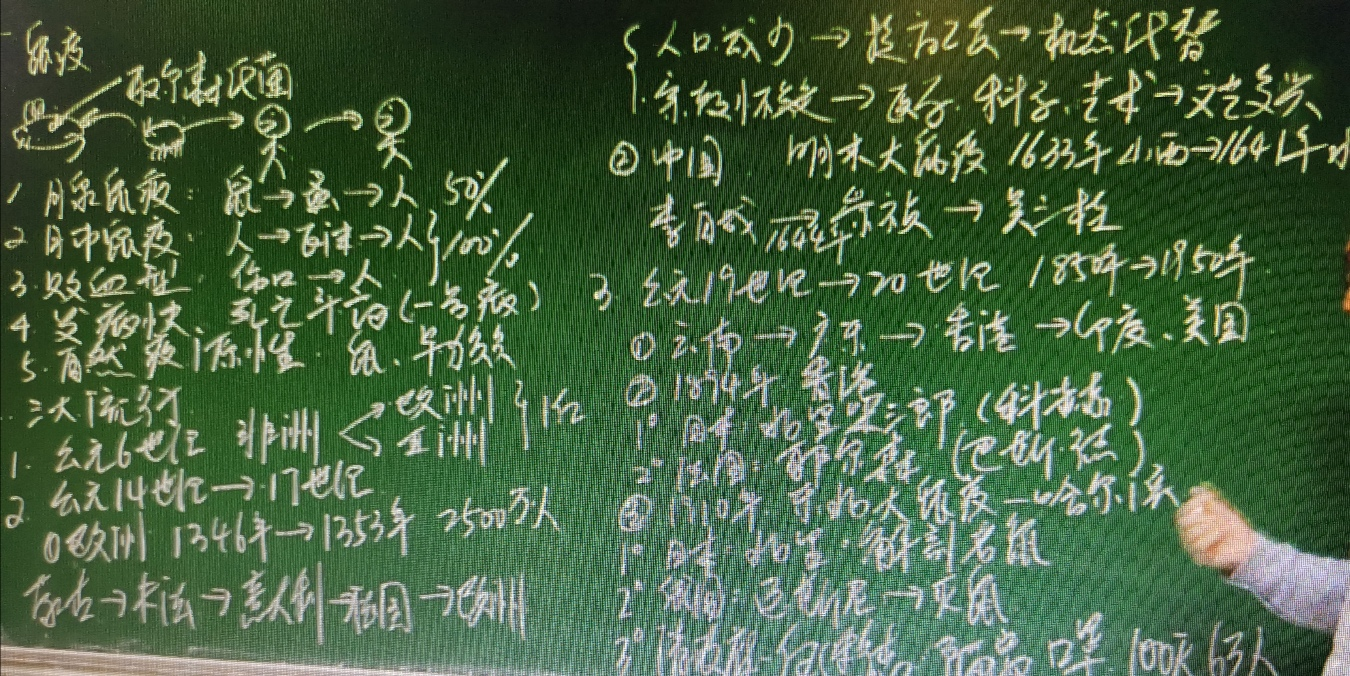 鼠疫
耶尔森氏菌
1 腺鼠疫: 鼠→蚤→人 50%
2 肺鼠疫: 人→→人 } 100%
3. 败血型 伤口→人
4 发病快、死亡率高 (一号病)
5. 自然疫源性. 鼠、旱獭
三大流行
1. 公元6世纪 非洲 < 欧洲 亚洲 } 1亿
2 公元14世纪→17世纪
①欧洲 1346年→1353年 2500万人
蒙古→→意大利→→欧洲
{ 人口减少→→机器代替
宗教→医学、科学、艺术→文艺复兴
②中国 明末大鼠疫 1633年山西→1641年
李自成→1644年→吴三桂
3 公元19世纪→20世纪 1850年→1950年
① 云南→广东→香港→印度、美国
② 1894年 香港
1° 日本: 北里柴三郎 (科赫)
2° 法国: 耶尔森 (巴斯德)
③ 1910年 东北大鼠疫—哈尔滨
1° 日本: 北里 · 解剖老鼠
2° 俄国: →灭鼠
3° 清政府- 口罩 100天 6万人